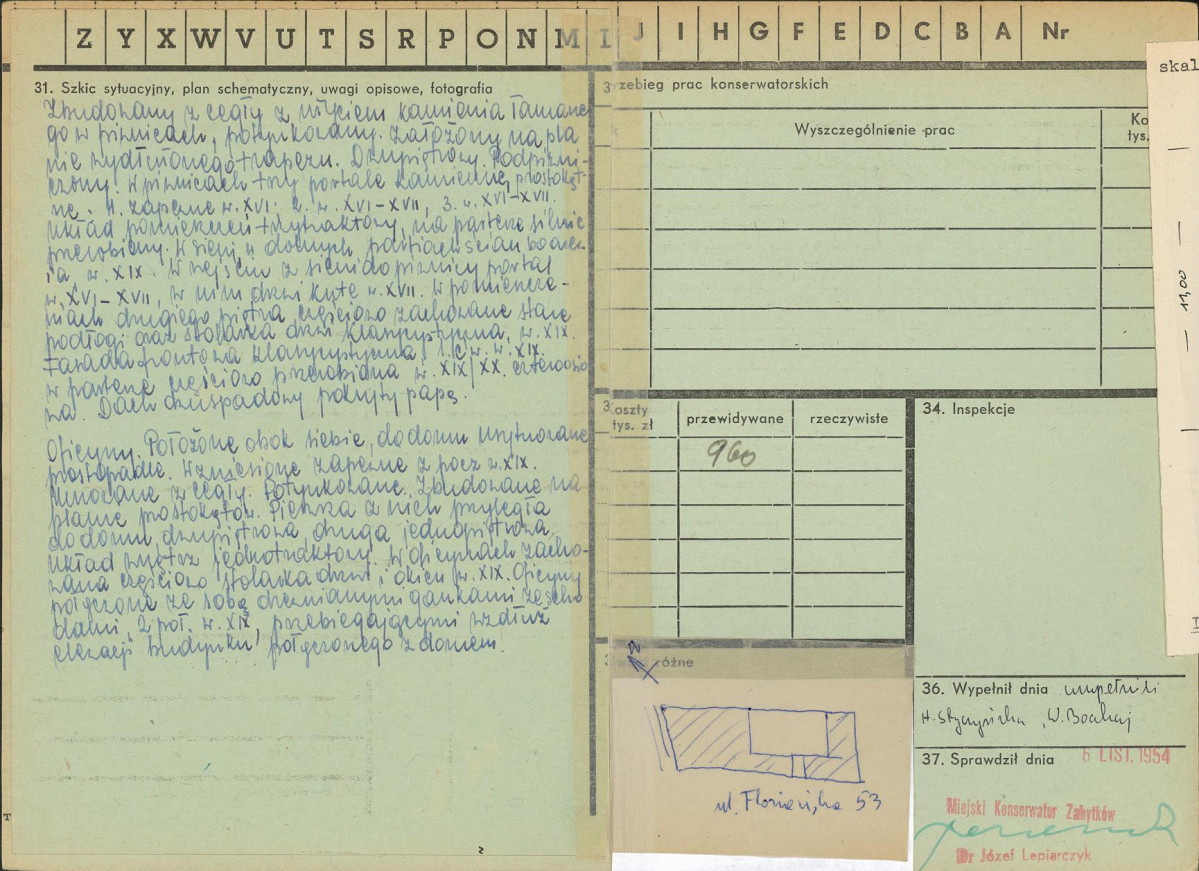 Z Y X W V U T S R P O N M Ł J I H G F E D C B A Nr
31. Szkic sytuacyjny, plan schematyczny, uwagi opisowe, fotografia
Zbudowany z cegły z użyciem kamienia łamane-
go w piwnicach, potynkowany. Założony na pla
nie wydłużonego trapezu. Dwupiętrowy. Podpiwni-
czony. W piwnicach trzy portale kamienne, prostokąt-
ne. 1. zapewne w. XVI. 2. w. XVI-XVII, 3. w. XVI-XVII.
Układ pomieszczeń trzytraktowy, na parterze silnie
przerobiony. W sieni, w dolnych partiach ścian boazer-
ia w. XIX. W wejściu z sieni do piwnicy portal
w. XVI-XVII, w nim drzwi kute w. XVII. W pomieszcze-
niach drugiego piętra częściowo zachowane stare
podłogi oraz stolarka drzwi klasycystyczna, w. XIX.
Fasada frontowa klasycystyczna, w. XIX.
w parterze częściowo przerobiona w. XIX/XX. czteroosio
wa. Dach dwuspadowy pokryty papą.
Oficyny. Położone obok siebie, do domu usytuowane
prostopadle. Wzniesione zapewne z pocz. w. XIX.
Murowane z cegły. Potynkowane. Zbudowane na
planie prostokątów. Pierwsza z nich przyległa
do domu, dwupiętrowa, druga jednopiętrowa.
Układ wnętrz jednotraktowy. W oficynach zacho-
wana częściowo stolarka drzwi i okien w. XIX. Oficyny
połączone ze sobą drewnianymi gankami ze scho
dami, 2 poł. w. XIX, przebiegającymi wzdłuż
elewacji budynku, połączonego z domem.
rzebieg prac konserwatorskich
Wyszczególnienie prac
Ko
tys.
oszty
tys. zł
przewidywane
rzeczywiste
960
34. Inspekcje
różne
ul. Floriańska 53
36. Wypełnił dnia wypełnili
H. Styczyńska, W. Bochnaj
37. Sprawdził dnia 6 LIST. 1954
Miejski Konserwator Zabytków
Dr Józef Lepiarczyk
skal
11,00